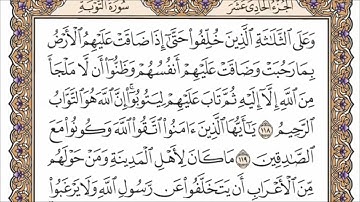 الجزء الحادي عشر
سورة التوبة
وَعَلَى ٱلثَّلَٰثَةِ ٱلَّذِينَ خُلِّفُوا۟ حَتَّىٰٓ إِذَا ضَاقَتْ عَلَيْهِمُ ٱلْأَرْضُ
بِمَا رَحُبَتْ وَضَاقَتْ عَلَيْهِمْ أَنفُسُهُمْ وَظَنُّوٓا۟ أَن لَّا مَلْجَأَ
مِنَ ٱللَّهِ إِلَّآ إِلَيْهِ ثُمَّ تَابَ عَلَيْهِمْ لِيَتُوبُوٓا۟ۚ إِنَّ ٱللَّهَ هُوَ ٱلتَّوَّابُ
ٱلرَّحِيمُ ١١٨ يَٰٓأَيُّهَا ٱلَّذِينَ ءَامَنُوا۟ ٱتَّقُوا۟ ٱللَّهَ وَكُونُوا۟ مَعَ
ٱلصَّٰدِقِينَ ١١٩ مَا كَانَ لِأَهْلِ ٱلْمَدِينَةِ وَمَنْ حَوْلَهُم
مِّنَ ٱلْأَعْرَابِ أَن يَتَخَلَّفُوا۟ عَن رَّسُولِ ٱللَّهِ وَلَا يَرْغَبُوا۟